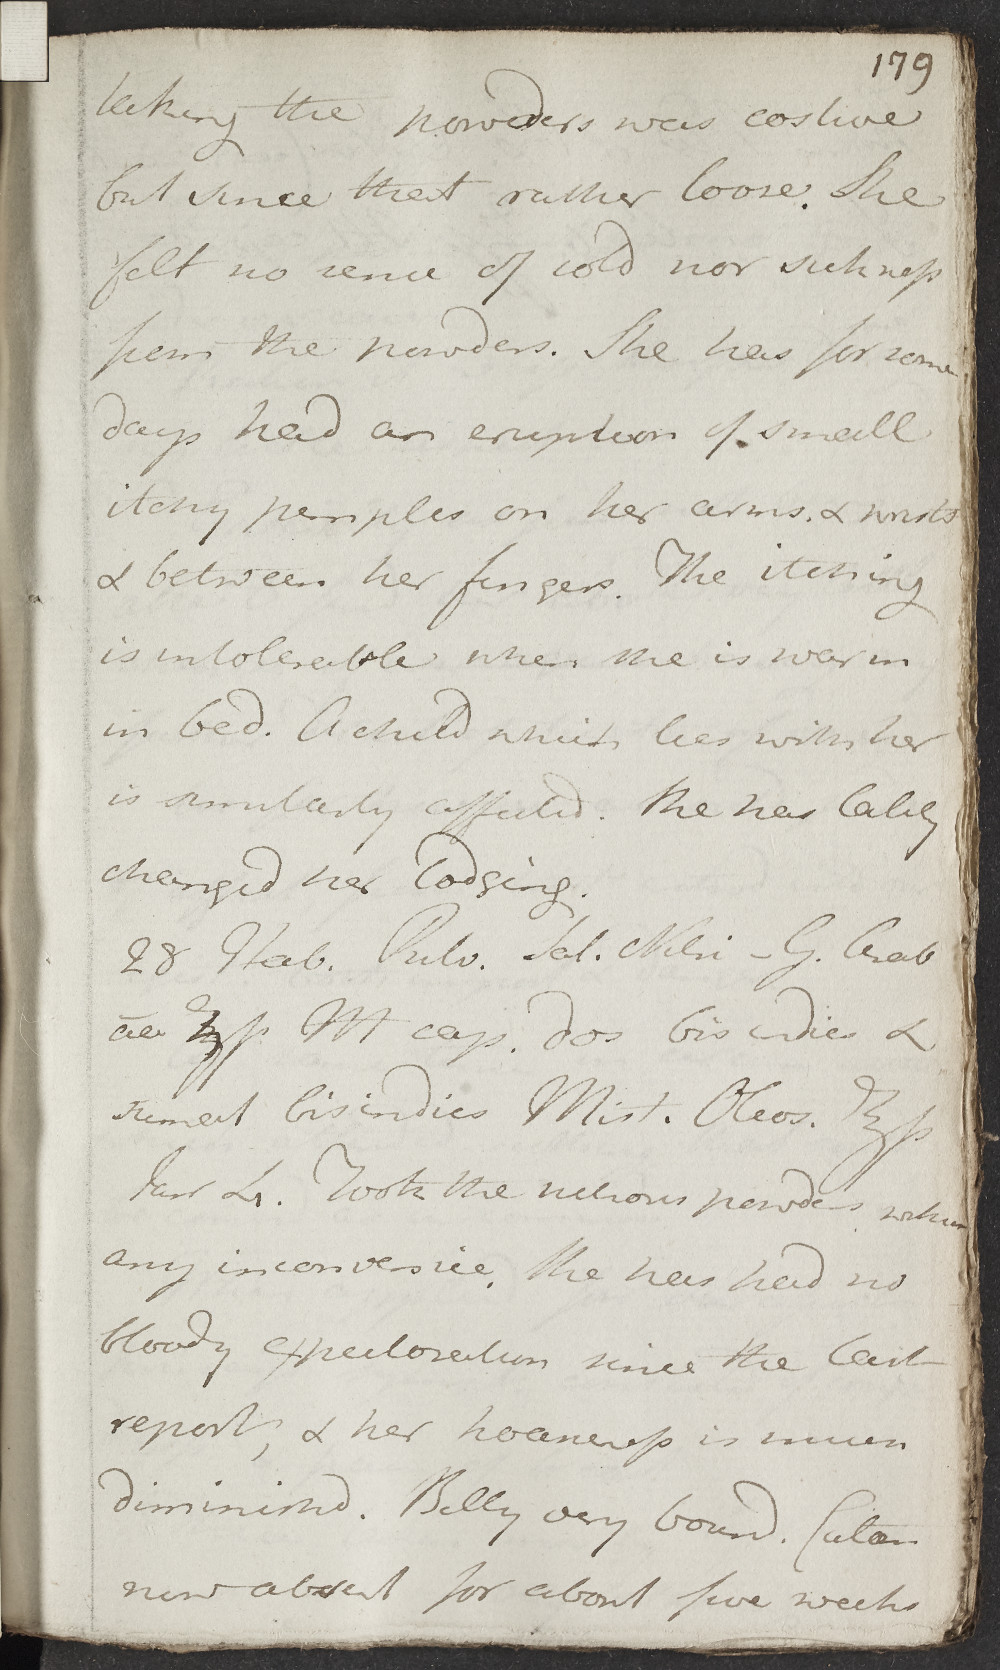 179
taking the powders was costive
but since that rather loose. She
felt no sence of cold nor sickness
from the powders. She has for some
days had an eruption of small
itchy pimples on her arms. & wrists
& between her fingers. The itching
is intolerable when she is warm
in bed. A child which lies with her
is similarly affected. She has lately
changed her lodging.
28 Hab. Pulv. Sal. Nitri - G. Arab
āa ʒſs M cap. dos bis indies &
sumat bis indies Mist. Oleos. ℥ſs
Janr 4. Took the nitrous powders
any inconvenice. She has had no
bloody expectoration since the last
report, & her hoarseness is much
diminishd. Belly very bound. Caten
now absent for about five weeks